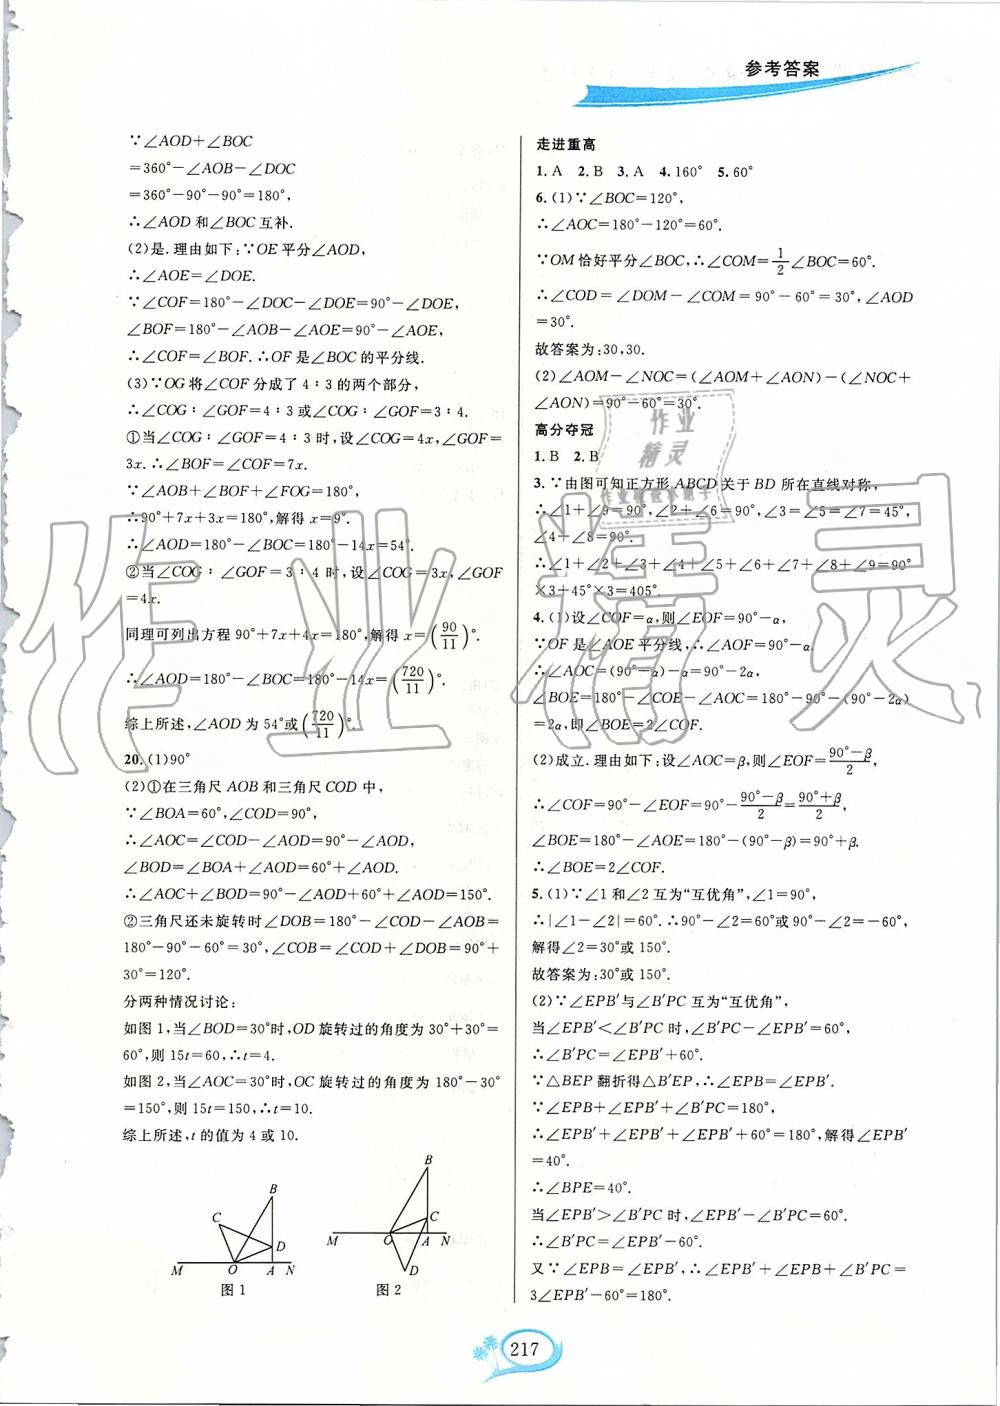 参考答案
∵∠AOD+∠BOC
=360°-∠AOB-∠DOC
=360°-90°-90°=180°,
∴∠AOD 和∠BOC 互补.
(2)是.理由如下:∵OE 平分∠AOD,
∴∠AOE=∠DOE.
∵∠COF=180°-∠DOC-∠DOE=90°-∠DOE,
∠BOF=180°-∠AOB-∠AOE=90°-∠AOE,
∴∠COF=∠BOF.∴OF 是∠BOC 的平分线.
(3)∵OG 将∠COF 分成了 4∶3 的两个部分,
∴∠COG∶∠GOF=4∶3 或∠COG∶∠GOF=3∶4.
①当∠COG∶∠GOF=4∶3 时,设∠COG=4x,∠GOF=
3x.∴∠BOF=∠COF=7x.
∵∠AOB+∠BOF+∠FOG=180°,
∴90°+7x+3x=180°,解得 x=9°.
∴∠AOD=180°-∠BOC=180°-14x=54°.
②当∠COG∶∠GOF=3∶4 时,设∠COG=3x,∠GOF
=4x.
同理可列出方程 90°+7x+4x=180°,解得 x=(90/11)°.
∴∠AOD=180°-∠BOC=180°-14x=(720/11)°.
综上所述,∠AOD 为 54°或(720/11)°.
20.(1)90°
(2)①在三角尺 AOB 和三角尺 COD 中,
∵∠BOA=60°,∠COD=90°,
∴∠AOC=∠COD-∠AOD=90°-∠AOD,
∠BOD=∠BOA+∠AOD=60°+∠AOD.
∴∠AOC+∠BOD=90°-∠AOD+60°+∠AOD=150°.
②三角尺还未旋转时∠DOB=180°-∠COD-∠AOB=
180°-90°-60°=30°,∠COB=∠COD+∠DOB=90°+
30°=120°.
分两种情况讨论:
如图 1,当∠BOD=30°时,OD 旋转过的角度为 30°+30°=
60°,则 15t=60,∴t=4.
如图 2,当∠AOC=30°时,OC 旋转过的角度为 180°-30°
=150°,则 15t=150,∴t=10.
综上所述,t 的值为 4 或 10.
B
C
D
M O A N
图 1
B
C
M O A N
D
图 2
走进重高
1. A 2. B 3. A 4. 160° 5. 60°
6. (1)∵∠BOC=120°,
∴∠AOC=180°-120°=60°.
∵OM 恰好平分∠BOC,∴∠COM=1/2∠BOC=60°.
∴∠COD=∠DOM-∠COM=90°-60°=30°,∠AOD
=30°.
故答案为:30,30.
(2)∠AOM-∠NOC=(∠AOM+∠AON)-(∠NOC+
∠AON)=90°-60°=30°.
高分夺冠
1. B 2. B
3. ∵由图可知正方形 ABCD 关于 BD 所在直线对称,
∴∠1+∠9=90°,∠2+∠6=90°,∠3=∠5=∠7=45°,
∠4+∠8=90°.
∴∠1+∠2+∠3+∠4+∠5+∠6+∠7+∠8+∠9=90°
×3+45°×3=405°.
4. (1)设∠COF=α,则∠EOF=90°-α,
∵OF 是∠AOE 平分线,∴∠AOF=90°-α.
∴∠AOC=(90°-α)-α=90°-2α.
∠BOE=180°-∠COE-∠AOC=180°-90°-(90°-2α)
=2α,即∠BOE=2∠COF.
(2)成立.理由如下:设∠AOC=β,则∠EOF=(90°-β)/2,
∴∠COF=90°-∠EOF=90°-(90°-β)/2=(90°+β)/2,
∠BOE=180°-∠AOE=180°-(90°-β)=90°+β.
∴∠BOE=2∠COF.
5. (1)∵∠1 和∠2 互为“互优角”,∠1=90°,
∴|∠1-∠2|=60°.∴90°-∠2=60°或 90°-∠2=-60°,
解得∠2=30°或 150°.
故答案为:30°或 150°.
(2)∵∠EPB′与∠B′PC 互为“互优角”,
当∠EPB′<∠B′PC 时,∠B′PC-∠EPB′=60°,
∴∠B′PC=∠EPB′+60°.
∵△BEP 翻折得△B′EP,∴∠EPB=∠EPB′.
∵∠EPB+∠EPB′+∠B′PC=180°,
∴∠EPB′+∠EPB′+∠EPB′+60°=180°,解得∠EPB′
=40°.
∴∠BPE=40°.
当∠EPB′>∠B′PC 时,∠EPB′-∠B′PC=60°.
∴∠B′PC=∠EPB′-60°.
又∵∠EPB=∠EPB′,∴∠EPB′+∠EPB+∠B′PC=
3∠EPB′-60°=180°.
217
作业精灵
作业
精灵